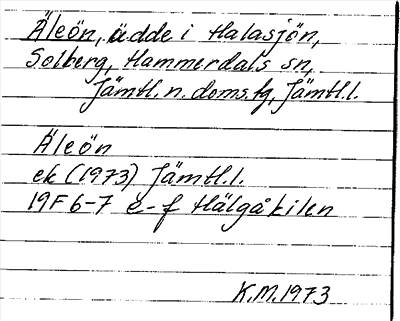 Äleön, ädde i Halasjön,
Solberg, Hammerdals sn,
Jämtl. n. doms.fg, Jämtl.l.
Äleön
ek (1973) Jämtl.l.
19F 6-7 e-f Hälgåkilen
K.M.1973